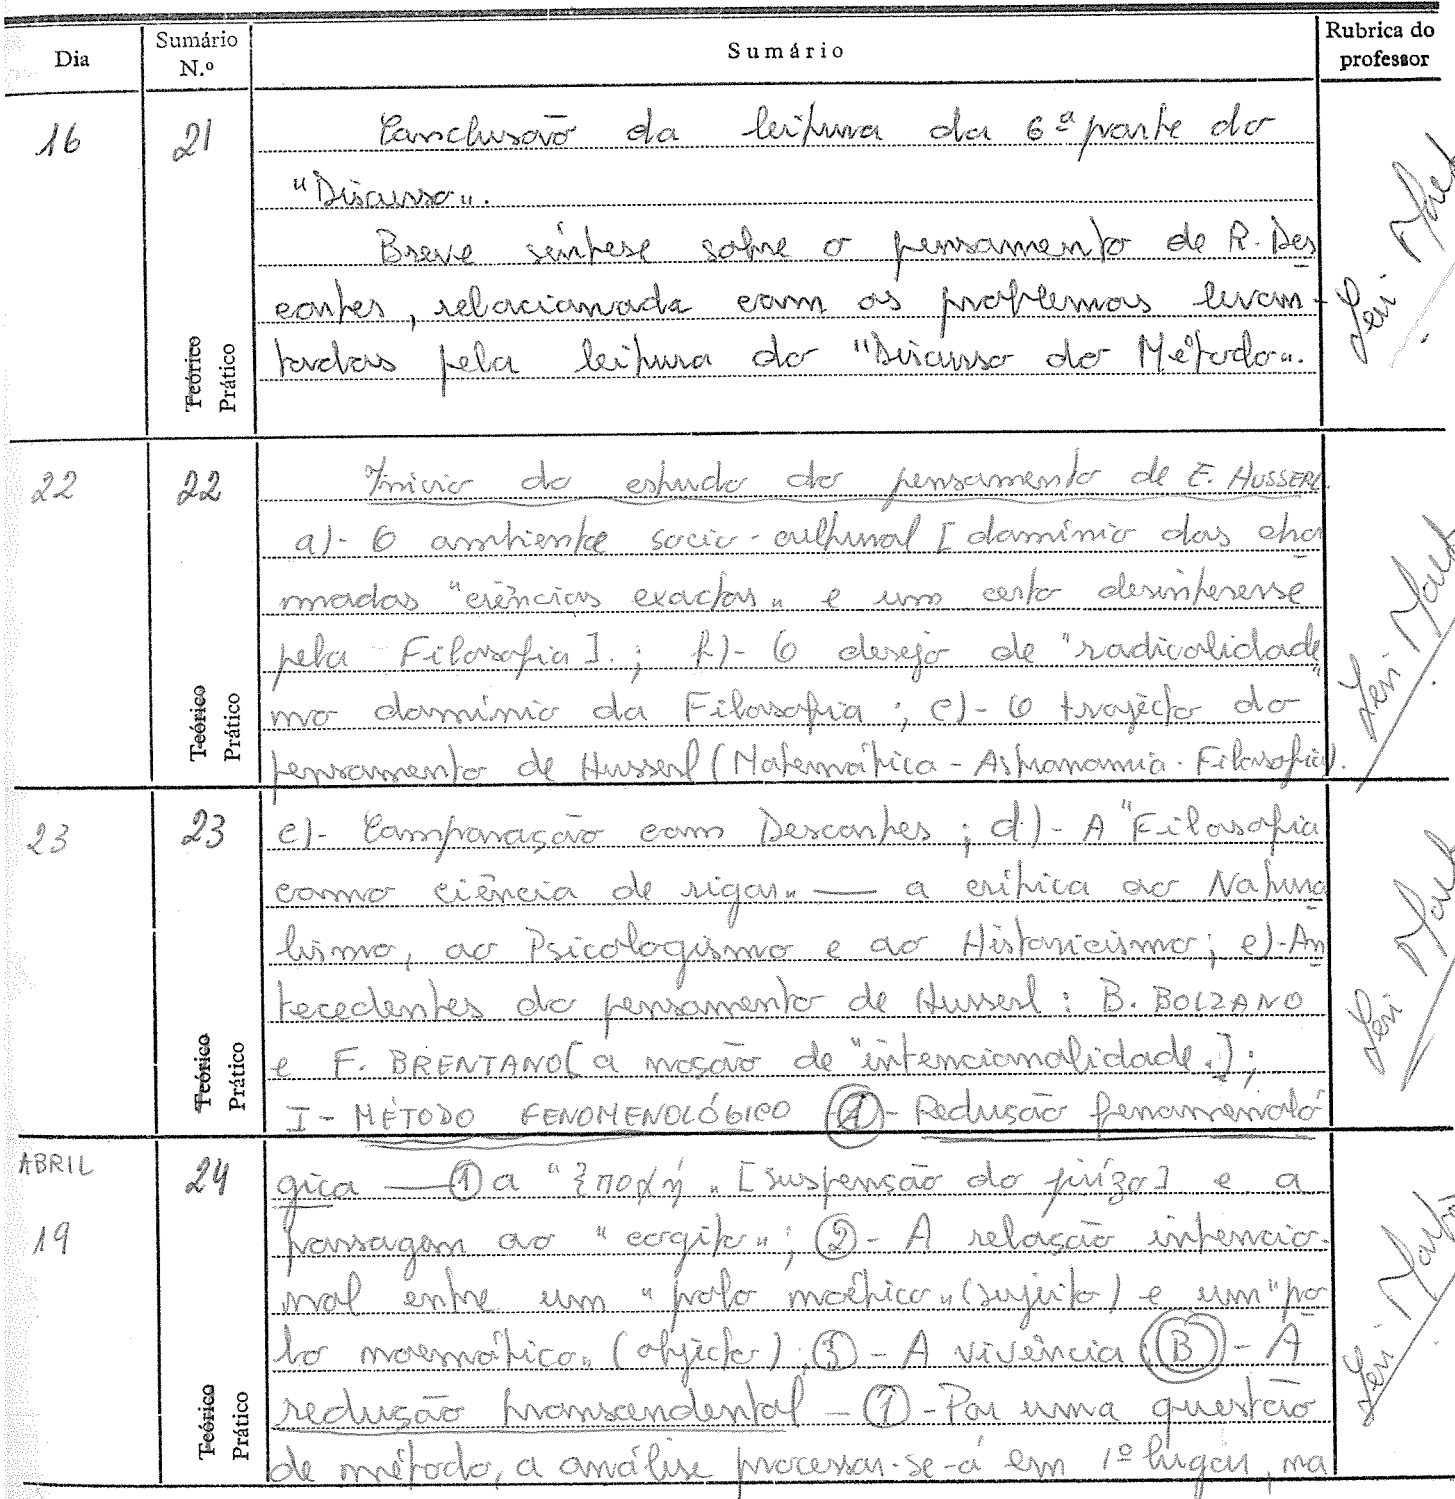 Dia Sumário N.º Sumário Rubrica do professor
16 21 Conclusão da leitura da 6ª parte do
"Discurso".
Breve síntese sobre o pensamento de R. Des
cartes, relacionada com os problemas levan-
tados pela leitura do "Discurso do Método".
Teórico
Prático
22 22 Início do estudo do pensamento de E. HUSSERL.
a)- O ambiente socio-cultural [domínio das cha
madas "ciências exactas" e um certo desinteresse
pela Filosofia].; b)- O desejo de "radicalidade"
no domínio da Filosofia; c)- O trajécto do
pensamento de Husserl (Matemática - Astronomia - Filosofia).
Teórico
Prático
23 23 c)- Comparação com Descartes; d)- A "Filosofia
como ciência de rigor" — a crítica ao Natura
lismo, ao Psicologismo e ao Historicismo; e)- An
tecedentes do pensamento de Husserl: B. BOLZANO
e F. BRENTANO [a noção de "intencionalidade"];
I - MÉTODO FENOMENOLÓGICO A - Redução fenomenoló
Teórico
Prático
ABRIL
19 24 gica — 1 a "ἐποχή" [suspensão do juízo] e a
passagem ao "cogito"; 2 - A relação intencio-
nal entre um "polo noético" (sujeito) e um "po
lo noemático" (objecto); 3 - A vivência; B - A
redução transcendental - 1 - Por uma questão
de método, a análise processar-se-á em 1º lugar, na
Teórico
Prático